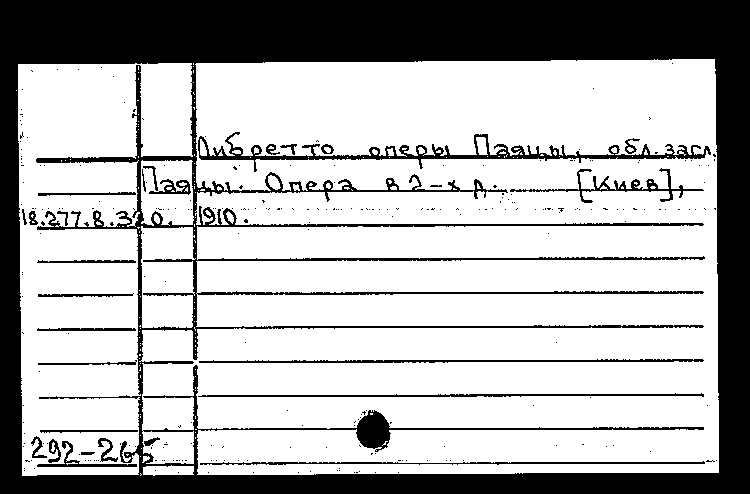 Либретто оперы Паяцы, обл. засл.
Паяцы. Опера в 2-х д. [Киев],
18.277.8.320. 1910.
292-265